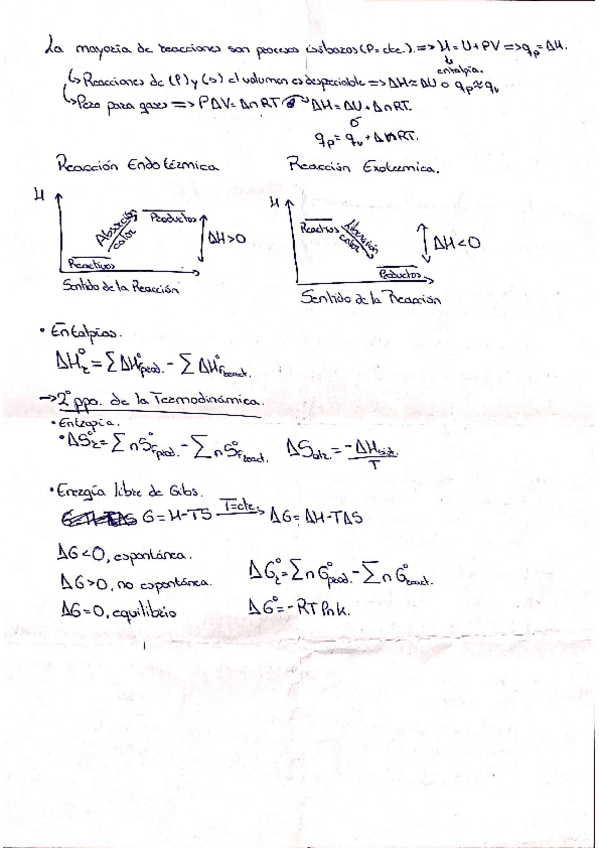 La mayoría de reacciones son procesos isóbaros (P = cte.). => H = U + PV => qp = ΔH.
entalpía.
↳ Reacciones de (l) y (s) el volumen es despreciable => ΔH ≈ ΔU o qp ≈ qv
↳ Pero para gases => PΔV = ΔnRT ΔH = ΔU + ΔnRT.
o
qp = qv + ΔnRT.
Reacción Endotérmica
Reacción Exotermica.
H
Absorción calor
Productos
ΔH>0
Reactivos
Sentido de la Reacción
H
Reactivos
calor
ΔH<0
Productos
Sentido de la Reacción
• Entalpías.
ΔH°r = Σ ΔH°fprod. - Σ ΔH°freact.
→ 2º ppo. de la Termodinámica.
• Entropia.
• ΔS°r = Σ n S°fprod. - Σ n S°freact. ΔSalr. = -ΔHsist. / T
• Energía libre de Gibs.
G = H - TS T=cte. → ΔG = ΔH - TΔS
ΔG < 0, espontánea.
ΔG > 0, no espontánea.
ΔG = 0, equilibrio
ΔG°r = Σ n G°prod. - Σ n G°react.
ΔG° = -RT ln k.